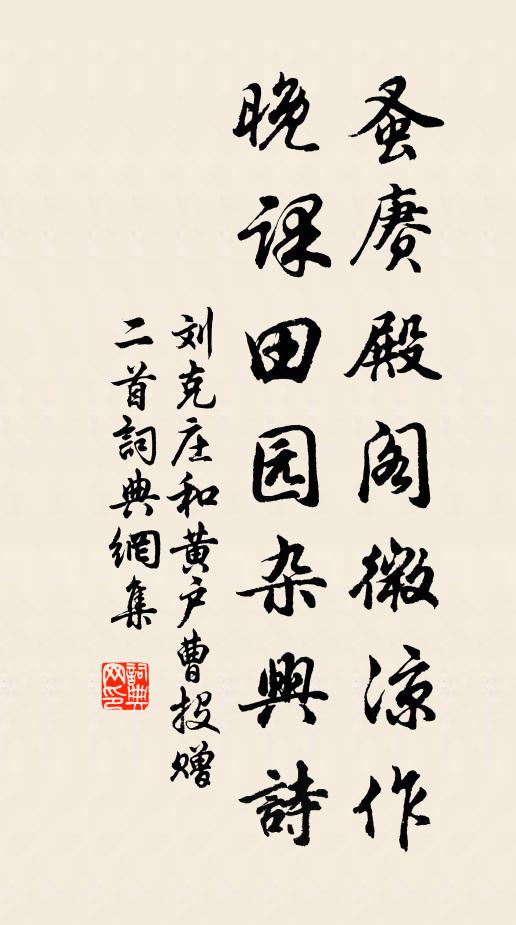 蚤赓殿阁微凉作
晚课田园杂興詩
刘克庄和黄户曹投赠
二首詞典網集
詞典網印